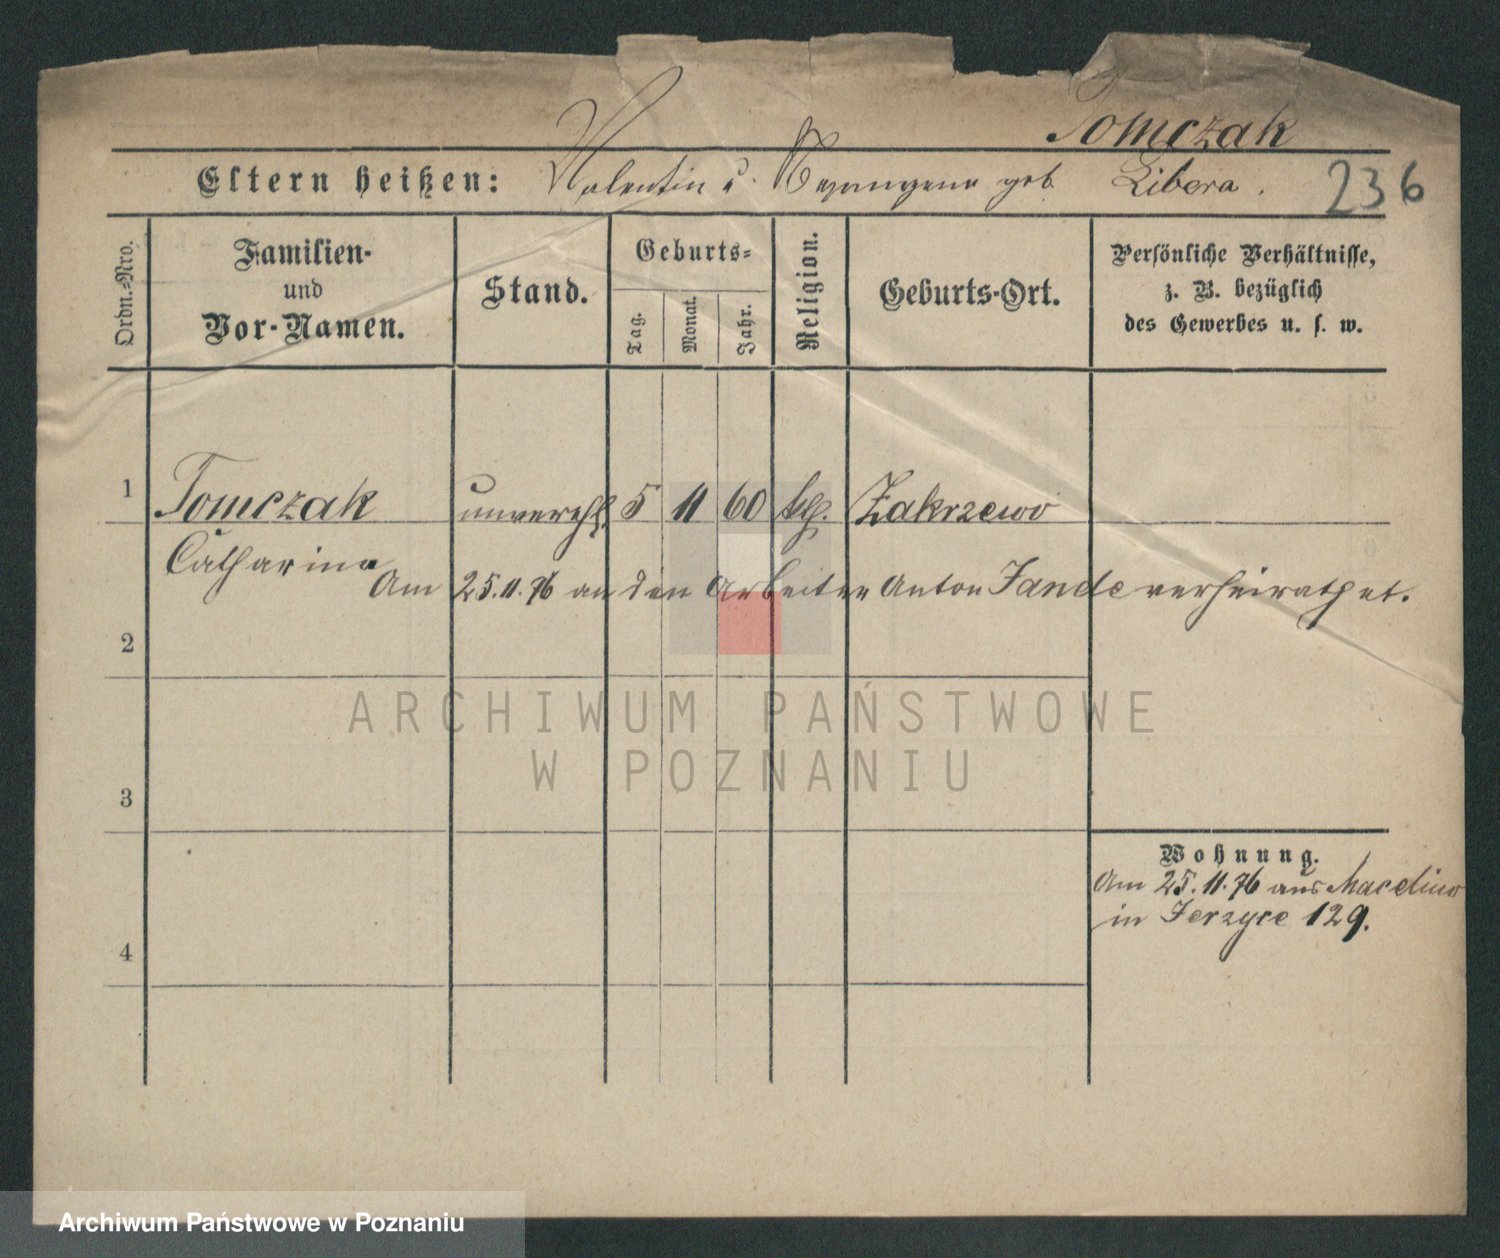 Tomczak
Eltern heißen: Valentin u. geb. Libera.
236
Ordn.-Nro.
Familien-
und
Vor-Namen.
Stand.
Geburts-
Tag.
Monat.
Jahr.
Religion.
Geburts-Ort.
Persönliche Verhältnisse,
z. B. bezüglich
des Gewerbes u. s. w.
1 Tomczak unverehl. 5 11 60 kth. Zakrzewo
Catharina
Am 25.11.76 an den Arbeiter Anton Jande verheirathet.
2
ARCHIWUM PAŃSTWOWE
W POZNANIU
3
Wohnung.
Am 25.11.76 aus
in Jerzyce 129.
4
Archiwum Państwowe w Poznaniu